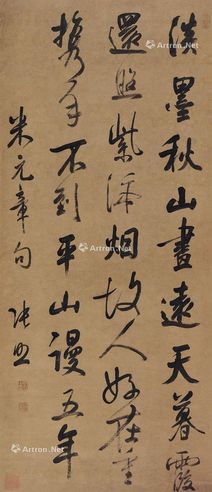 淡墨秋山畫遠天暮霞
還照紫添烟故人好在重
携手不到平山謾五年
米元章句 張照
Artron.Net
Artron.Net
Artron.Net
Artron.Net